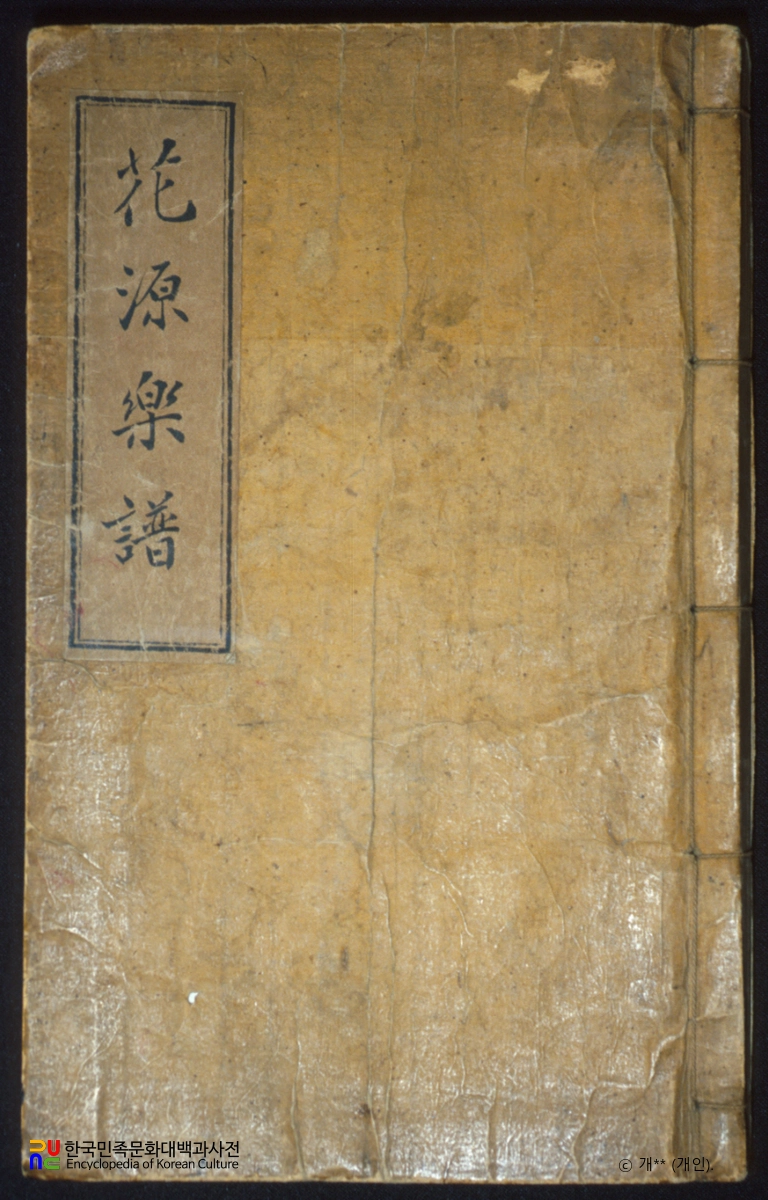 花源樂譜
한국민족문화대백과사전
Encyclopedia of Korean Culture
© 개** (개인)